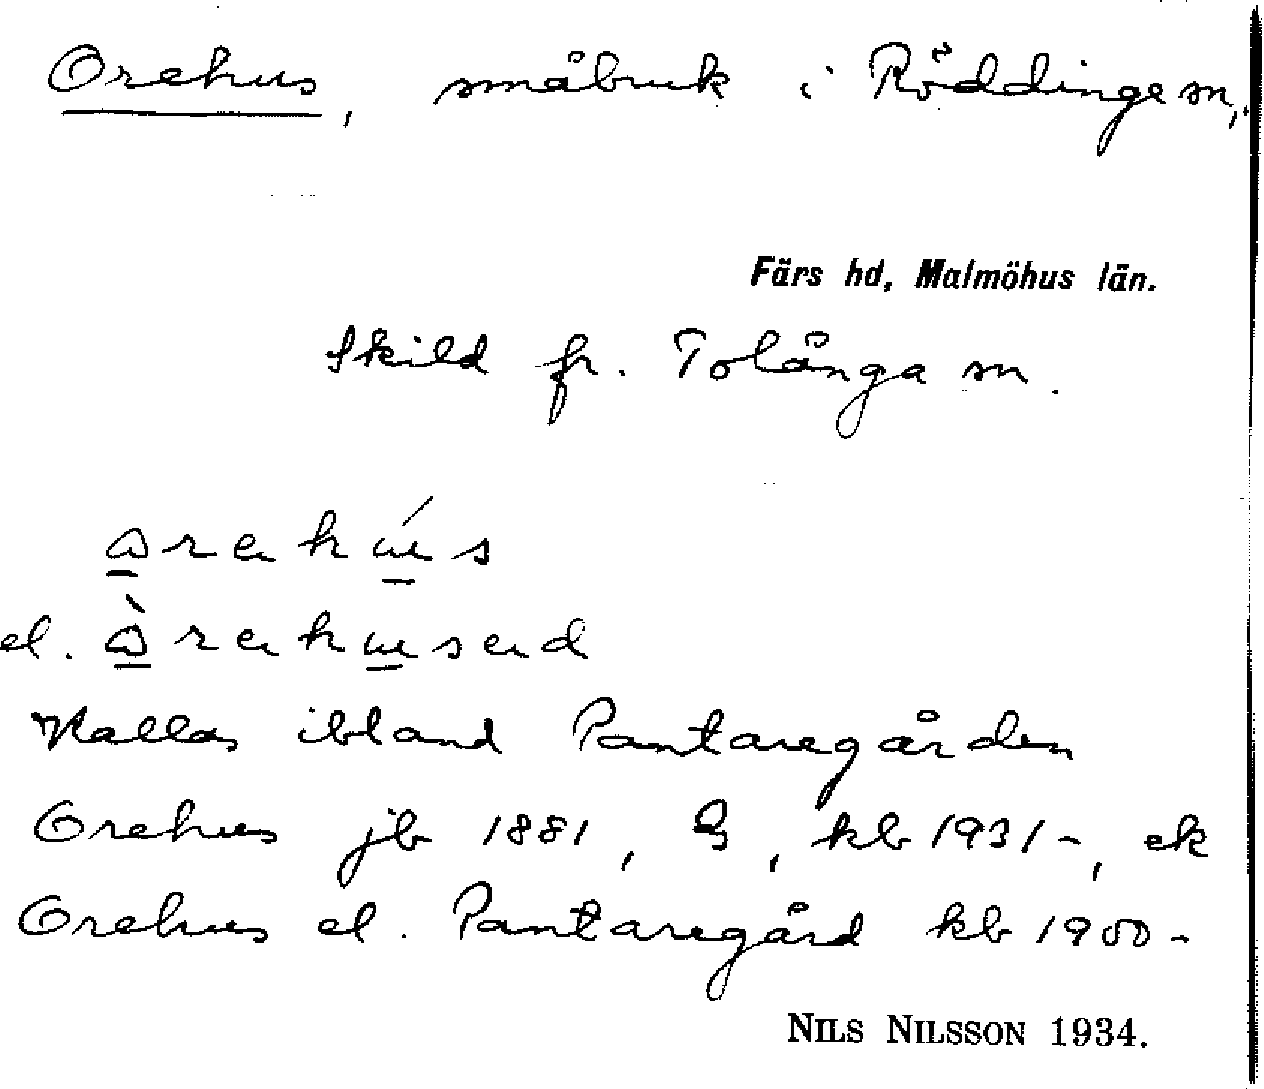 Orehus, småbruk i Röddinge sn,
Färs hd, Malmöhus län.
Skild fr. Tolånga sn.
el.
Kallas ibland Pantaregården
Orehus jb 1881, kb 1931-, ek
Orehus el. Pantaregård kb 1900-
NILS NILSSON 1934.